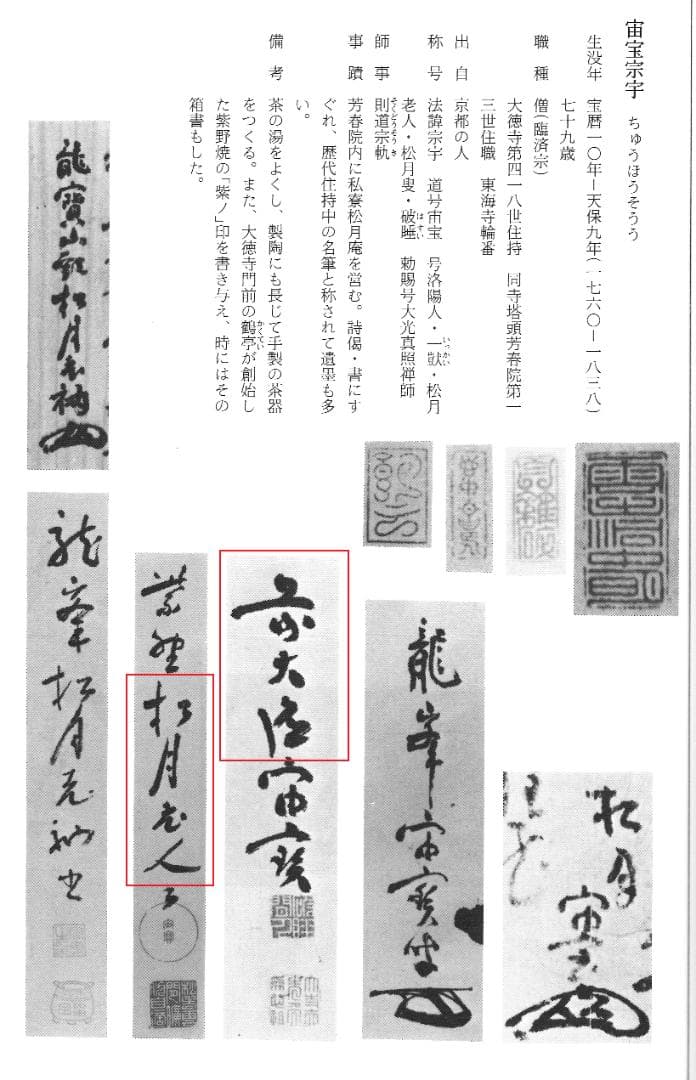 宙宝宗宇 ちゅうほうそうう
生没年 宝暦一〇年ー天保九年(一七六〇ー一八三八)
七十九歳
職種 僧(臨済宗)
大徳寺第四一八世住持 同寺塔頭芳春院第一
三世住職 東海寺輪番
出自 京都の人
称号 法諱宗宇 道号宙宝 号洛陽人・一獃・松月
老人・松月叟・破睡 勅賜号大光真照禅師
師事 則道宗軌
事蹟 芳春院内に私寮松月庵を営む。詩偈・書にす
ぐれ、歴代住持中の名筆と称されて遺墨も多
い。
備考 茶の湯をよくし、製陶にも長じて手製の茶器
をつくる。また、大徳寺門前の鶴亭が創始し
た紫野焼の「紫ノ」印を書き与え、時にはその
箱書もした。
松月
宙宝
龍峯宙寳
前大徳宙寳
紫野松月老人
龍峯松月老衲書
龍寳山龍松月老衲